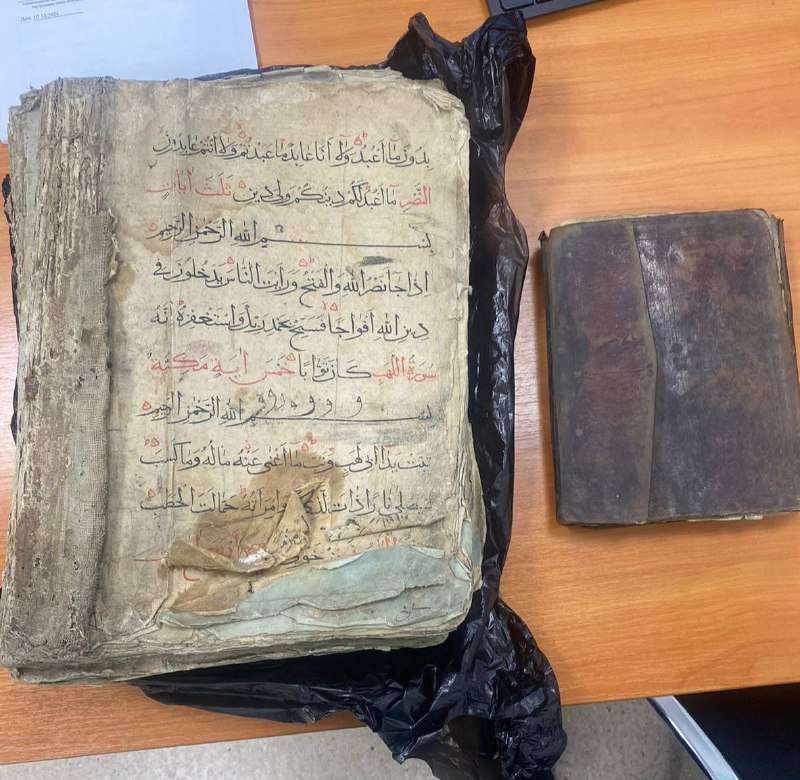 بدُونَ مَا أَعْبُدُ وَلَا أَنَا عَابِدٌ مَا عَبَدْتُمْ وَلَا أَنْتُمْ عَابِدُونَ
النَّصْرِ مَا أَعْبُدُ لَكُمْ دِينُكُمْ وَلِيَ دِينِ ثَلَثَ اٰيَاتٍ
بسم الله الرَّحْمٰنِ الرَّحِيمِ
اِذَا جَا نَصْرُ اللهِ وَالْفَتْحُ وَرَاَيْتَ النَّاسَ يَدْخُلُونَ فِي
دِينِ اللهِ أَفْوَاجًا فَسَبِّحْ بِحَمْدِ رَبِّكَ وَاسْتَغْفِرْهُ اِنَّهُ
سُورَةُ اللَّهَبِ كَانَ تَوَّابًا خَمْسَ اٰيَةٍ مَكِّيَّةٌ
بسم الله الرَّحْمٰنِ الرَّحِيمِ
تَبَّتْ يَدَا اَبِي لَهَبٍ وَتَبَّ مَا اَغْنٰى عَنْهُ مَالُهُ وَمَا كَسَبَ
سيصلى نَارًا ذَاتَ وَامْرَاَتُهُ حَمَّالَتَ الْحَطَبِ